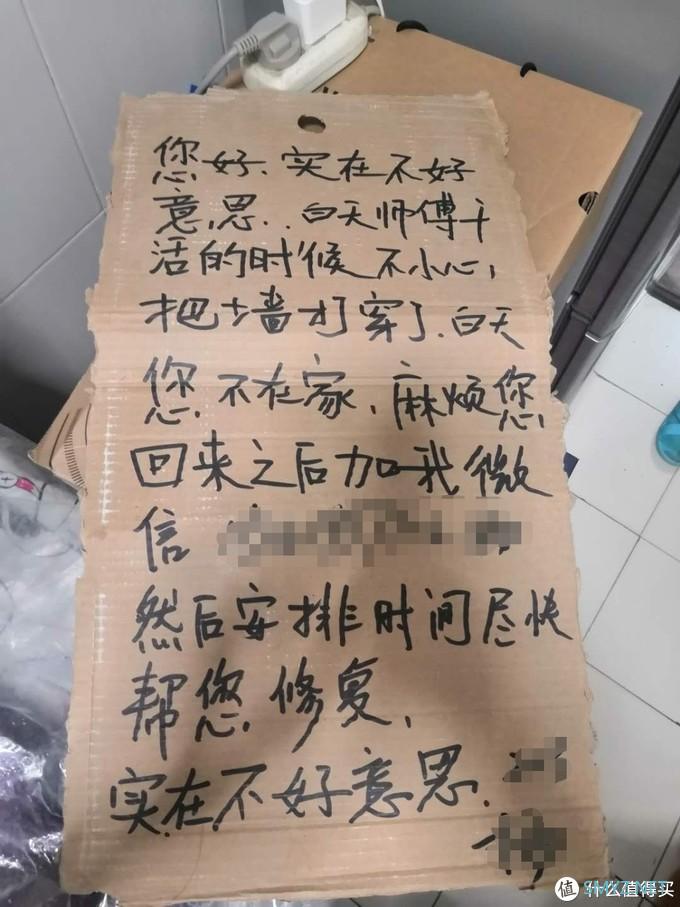 您好、实在不好
意思..白天师傅干
活的时候不小心,
把墙打穿了.白天
您不在家,麻烦您
回来之后加我微
信
然后安排时间尽快
帮您修复,
实在不好意思.
值 什么值得买